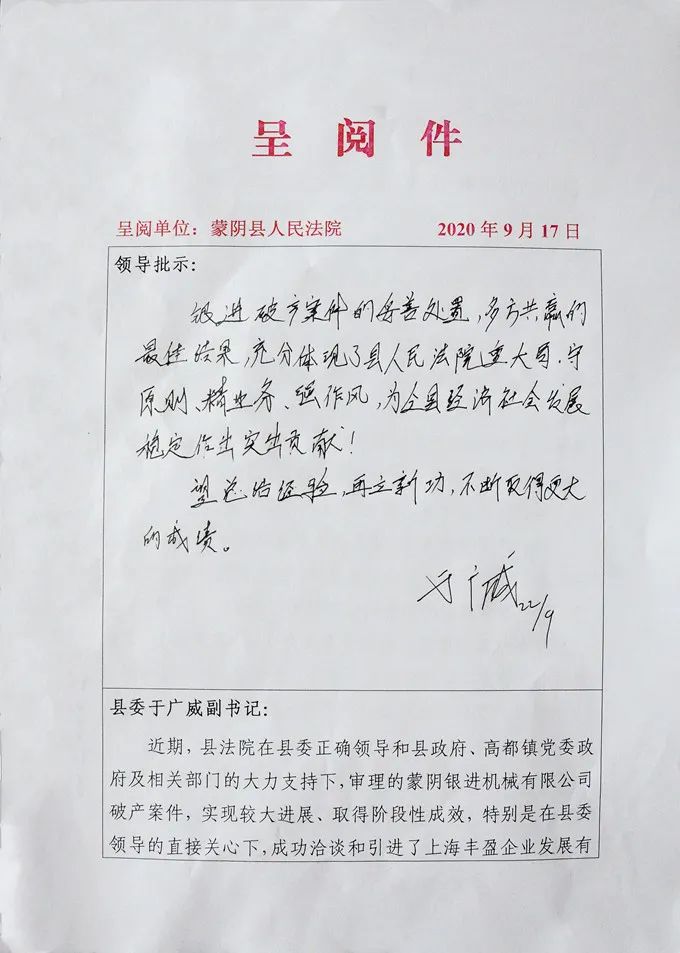 呈阅件
呈阅单位：蒙阴县人民法院 2020年9月17日
领导批示：
银进破产案件的妥善处置，多方共赢的
最佳结果，充分体现了县人民法院重大局、守
原则、精业务、强作风，为全县经济社会发展
稳定作出突出贡献！
望总结经验，再立新功，不断取得更大
的成绩。
于广威 22/9
县委于广威副书记：
近期，县法院在县委正确领导和县政府、高都镇党委政
府及相关部门的大力支持下，审理的蒙阴银进机械有限公司
破产案件，实现较大进展、取得阶段性成效，特别是在县委
领导的直接关心下，成功洽谈和引进了上海丰盈企业发展有